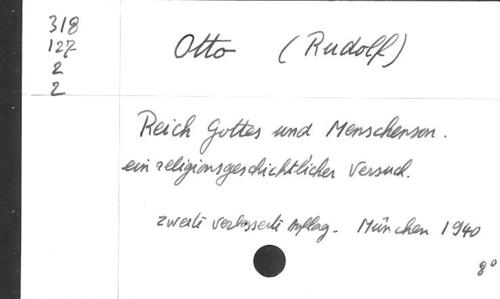 318
127
2
2
Otto (Rudolf)
Reich Gottes und Menschenson.
ein religionsgeschichtlicher Versuch.
zweite verbesserte Auflag. München 1940
8°